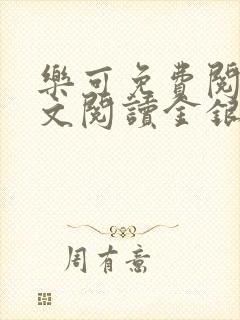 樂可免費閱
文閱讀金銀
周有意